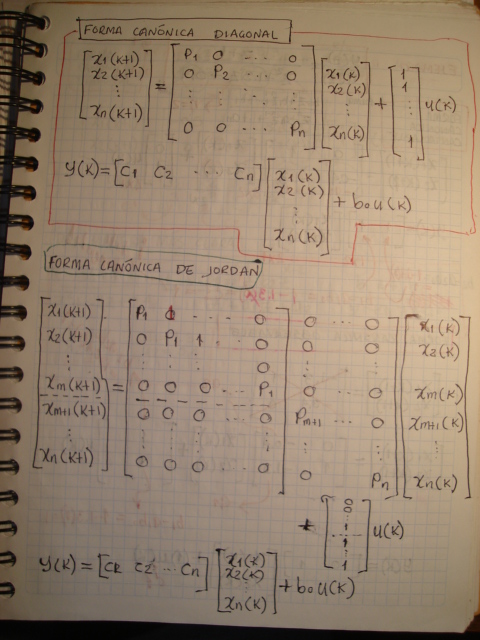 FORMA CANÓNICA DIAGONAL
[x1(k+1) x2(k+1) ⋮ xn(k+1)] = [P1 0 ... 0; 0 P2 ... 0; ⋮ ⋮ ⋱ ⋮; 0 0 ... Pn] [x1(k) x2(k) ⋮ xn(k)] + [1 1 ⋮ 1] u(k)
y(k) = [C1 C2 ... Cn] [x1(k) x2(k) ⋮ xn(k)] + b0 u(k)
FORMA CANÓNICA DE JORDAN
[x1(k+1) x2(k+1) ⋮ xm(k+1) xm+1(k+1) ⋮ xn(k+1)] = [P1 1 ... 0 0 ... 0; 0 P1 1 ... 0 0 ... 0; ⋮ ⋮ ⋮ 0 ⋮ ⋮; 0 0 0 ... P1 0 ... 0; 0 0 0 ... 0 Pm+1 ... 0; ⋮ ⋮ ⋮ ⋮ ⋮ ⋮; 0 0 0 ... 0 0 Pn] [x1(k) x2(k) ⋮ xm(k) xm+1(k) ⋮ xn(k)]
+ [0 0 ⋮ 1 1 ⋮ 1] u(k)
y(k) = [CR C2 ... Cn] [x1(k) x2(k) ⋮ xn(k)] + b0 u(k)